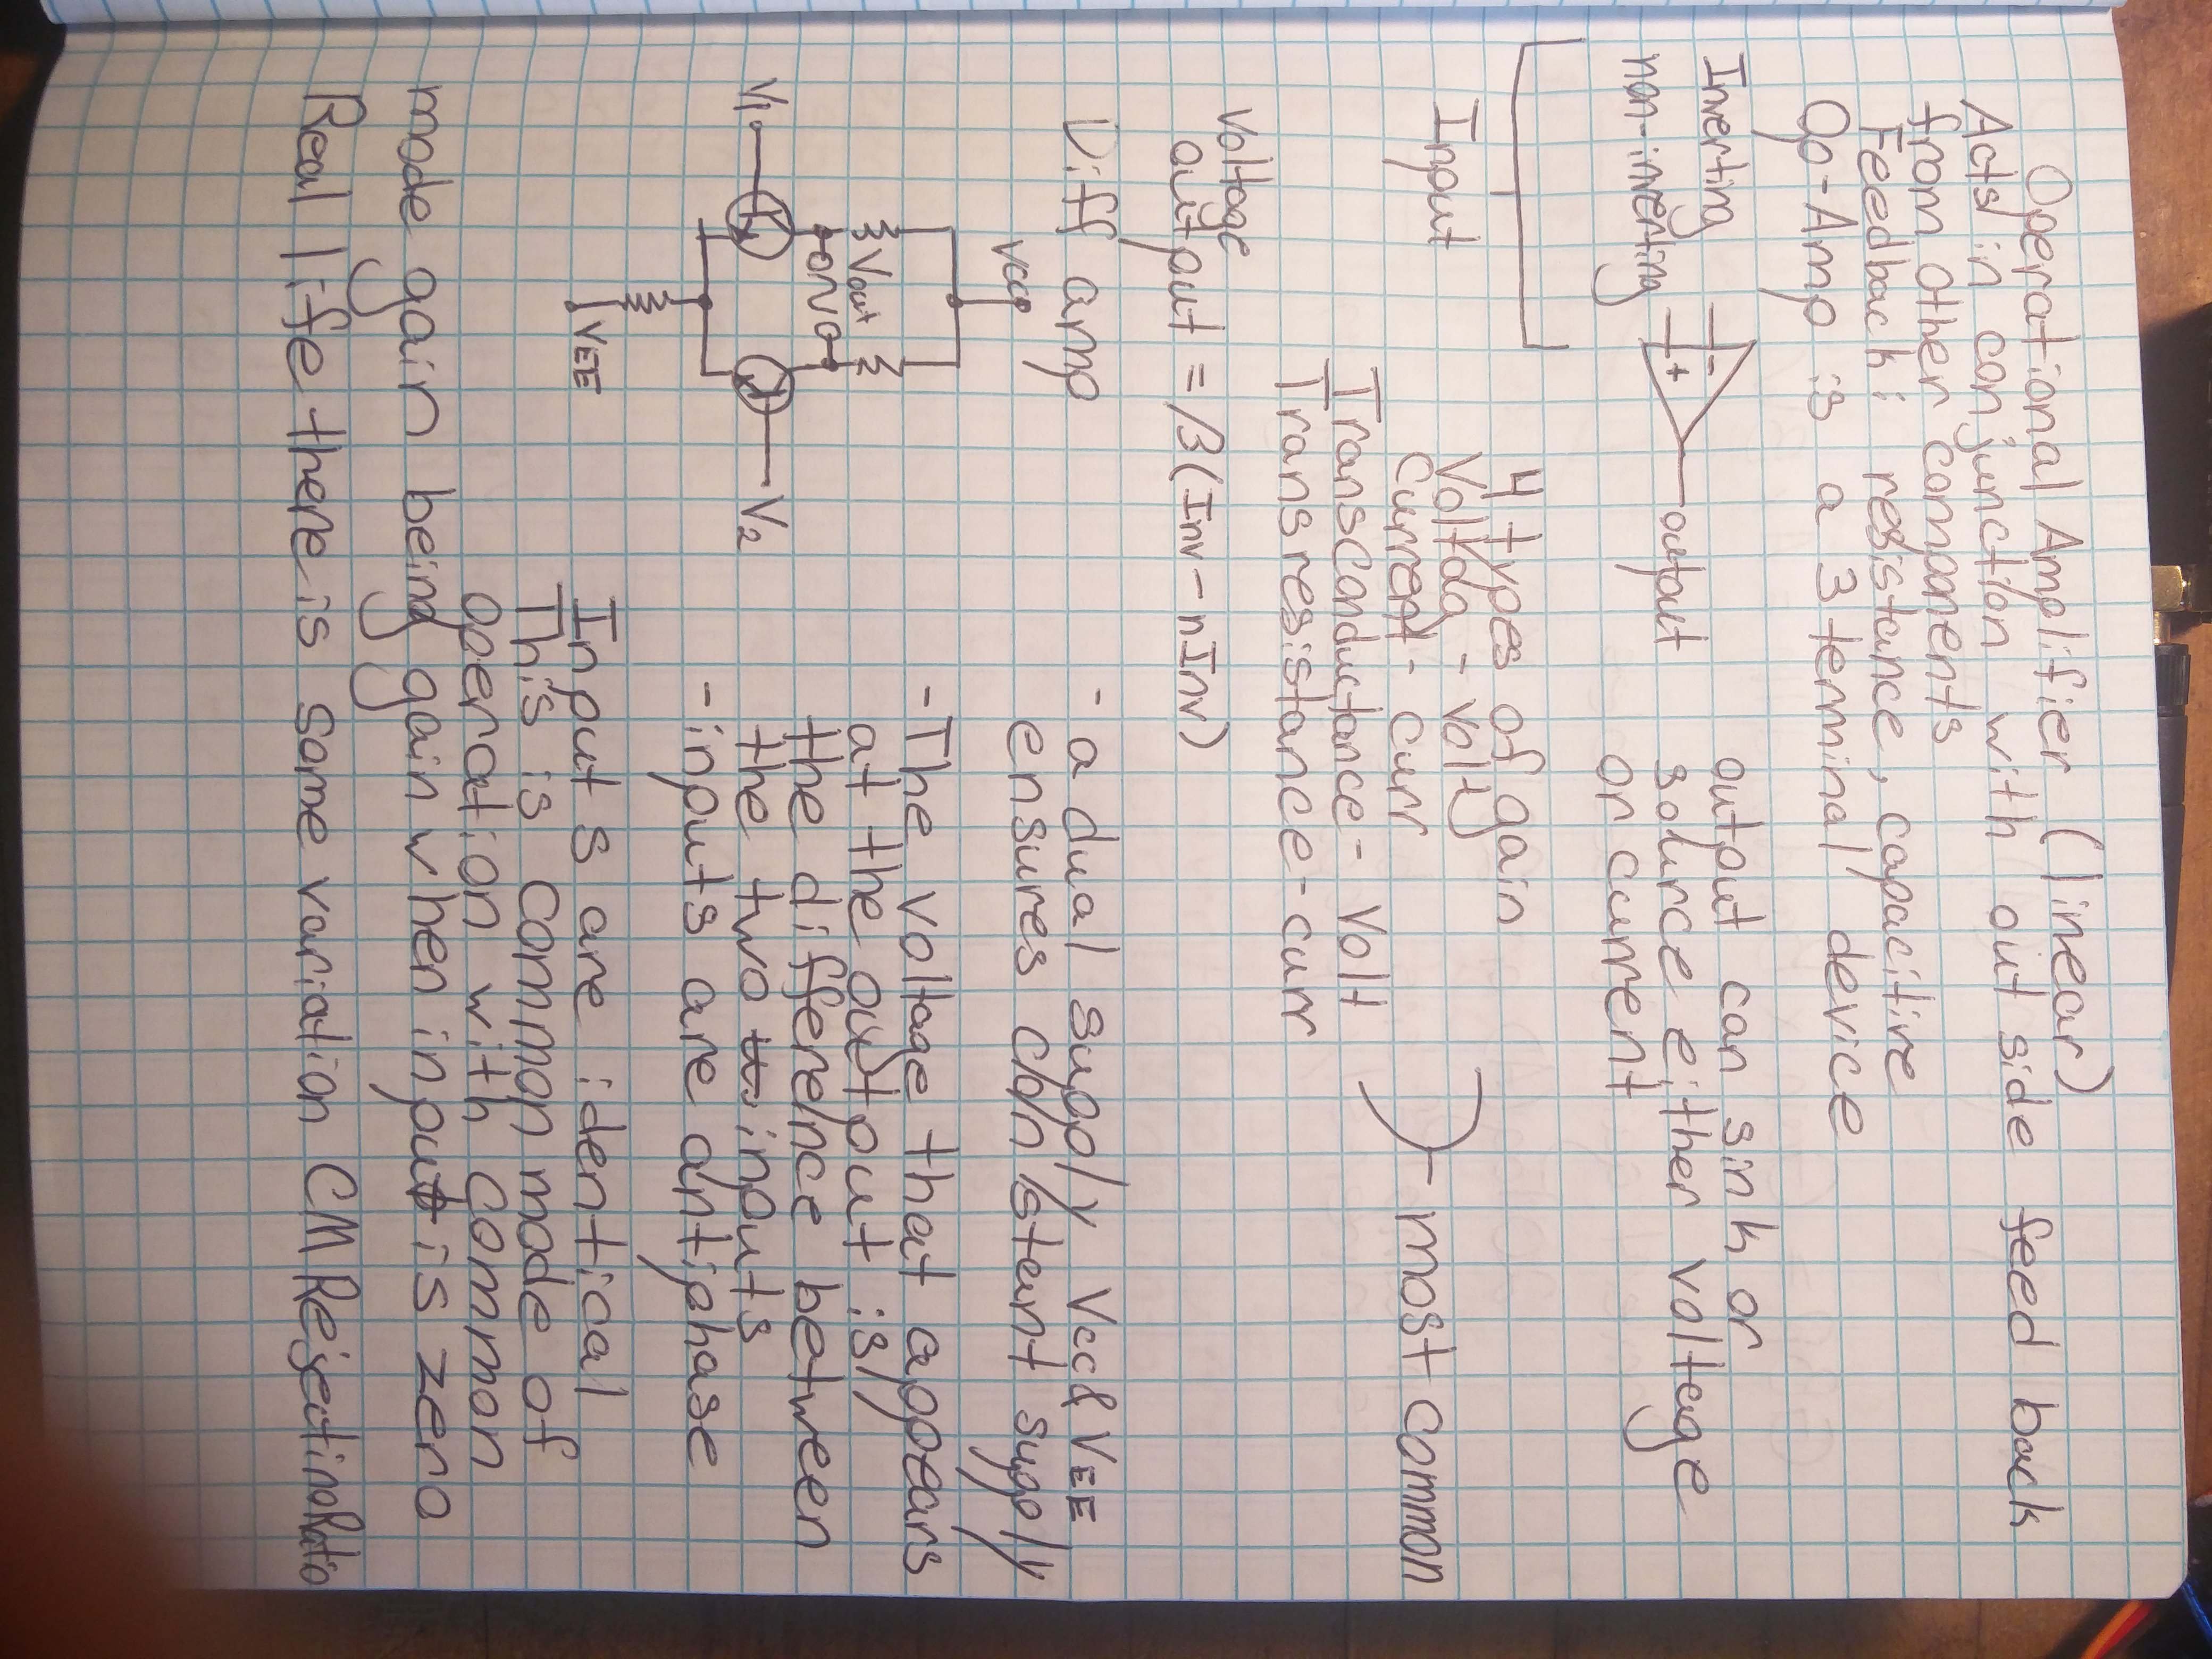 Operational Amplifier (linear)
Acts in conjunction with out side feed back
from other components
Feedback: resistance, capacitive
Op-Amp is a 3 terminal device
Inverting
non-inverting
-
+
output
output can sink or
source either voltage
or current
Input
4 types of gain
Voltag - volt
Current - curr
most common
Transconductance - Volt
Transresistance - curr
Voltage
output = β(Inv - nInv)
Diff amp
- a dual supply Vcc & VEE
ensures constant supply
VCC
Vout
V1
V2
VEE
- The voltage that appears
at the output is
the difference between
the two inputs
- inputs are antiphase
Inputs are identical
This is common mode of
operation with common
mode gain being gain when input is zero
Real life there is some variation CM RejectinoRatio